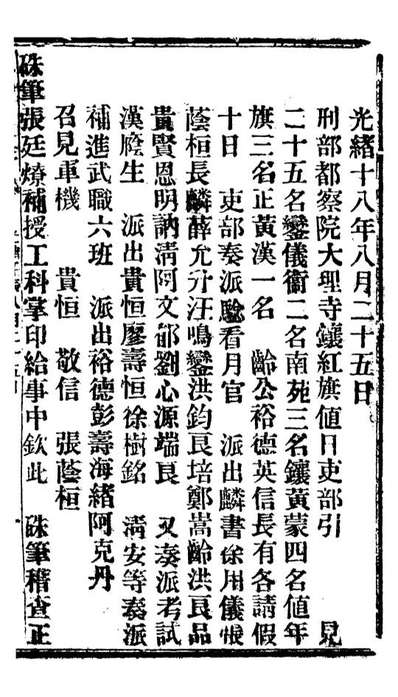 光緒十八年八月二十五日
刑部都察院大理寺鑲紅旗値日吏部引　見
二十五名鑾儀衞二名南苑三名鑲黃蒙四名値年
旗三名正黃漢一名　齡公裕德英信長有各請假
十日　吏部奏派騐看月官　派出麟書徐用儀張
蔭桓長麟薛允升汪鳴鑾洪鈞良培鄭嵩齡洪良品
貴賢恩明訥清阿文郁劉心源端良　又奏派考試
漢廕生　派出貴恒廖壽恒徐樹銘　淸安等奏派
補進武職六班　派出裕德彭壽海緒阿克丹
召見軍機　貴恒　敬信　張蔭桓
硃筆張廷燎補授工科掌印給事中欽此　硃筆稽查正